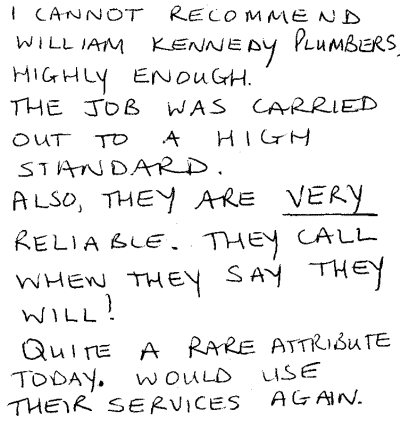 I CANNOT RECOMMEND
WILLIAM KENNEDY PLUMBERS,
HIGHLY ENOUGH.
THE JOB WAS CARRIED
OUT TO A HIGH
STANDARD.
ALSO, THEY ARE VERY
RELIABLE. THEY CALL
WHEN THEY SAY THEY
WILL!
QUITE A RARE ATTRIBUTE
TODAY. WOULD USE
THEIR SERVICES AGAIN.